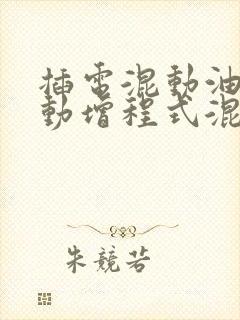 插电混動油
動增程式混
朱競若